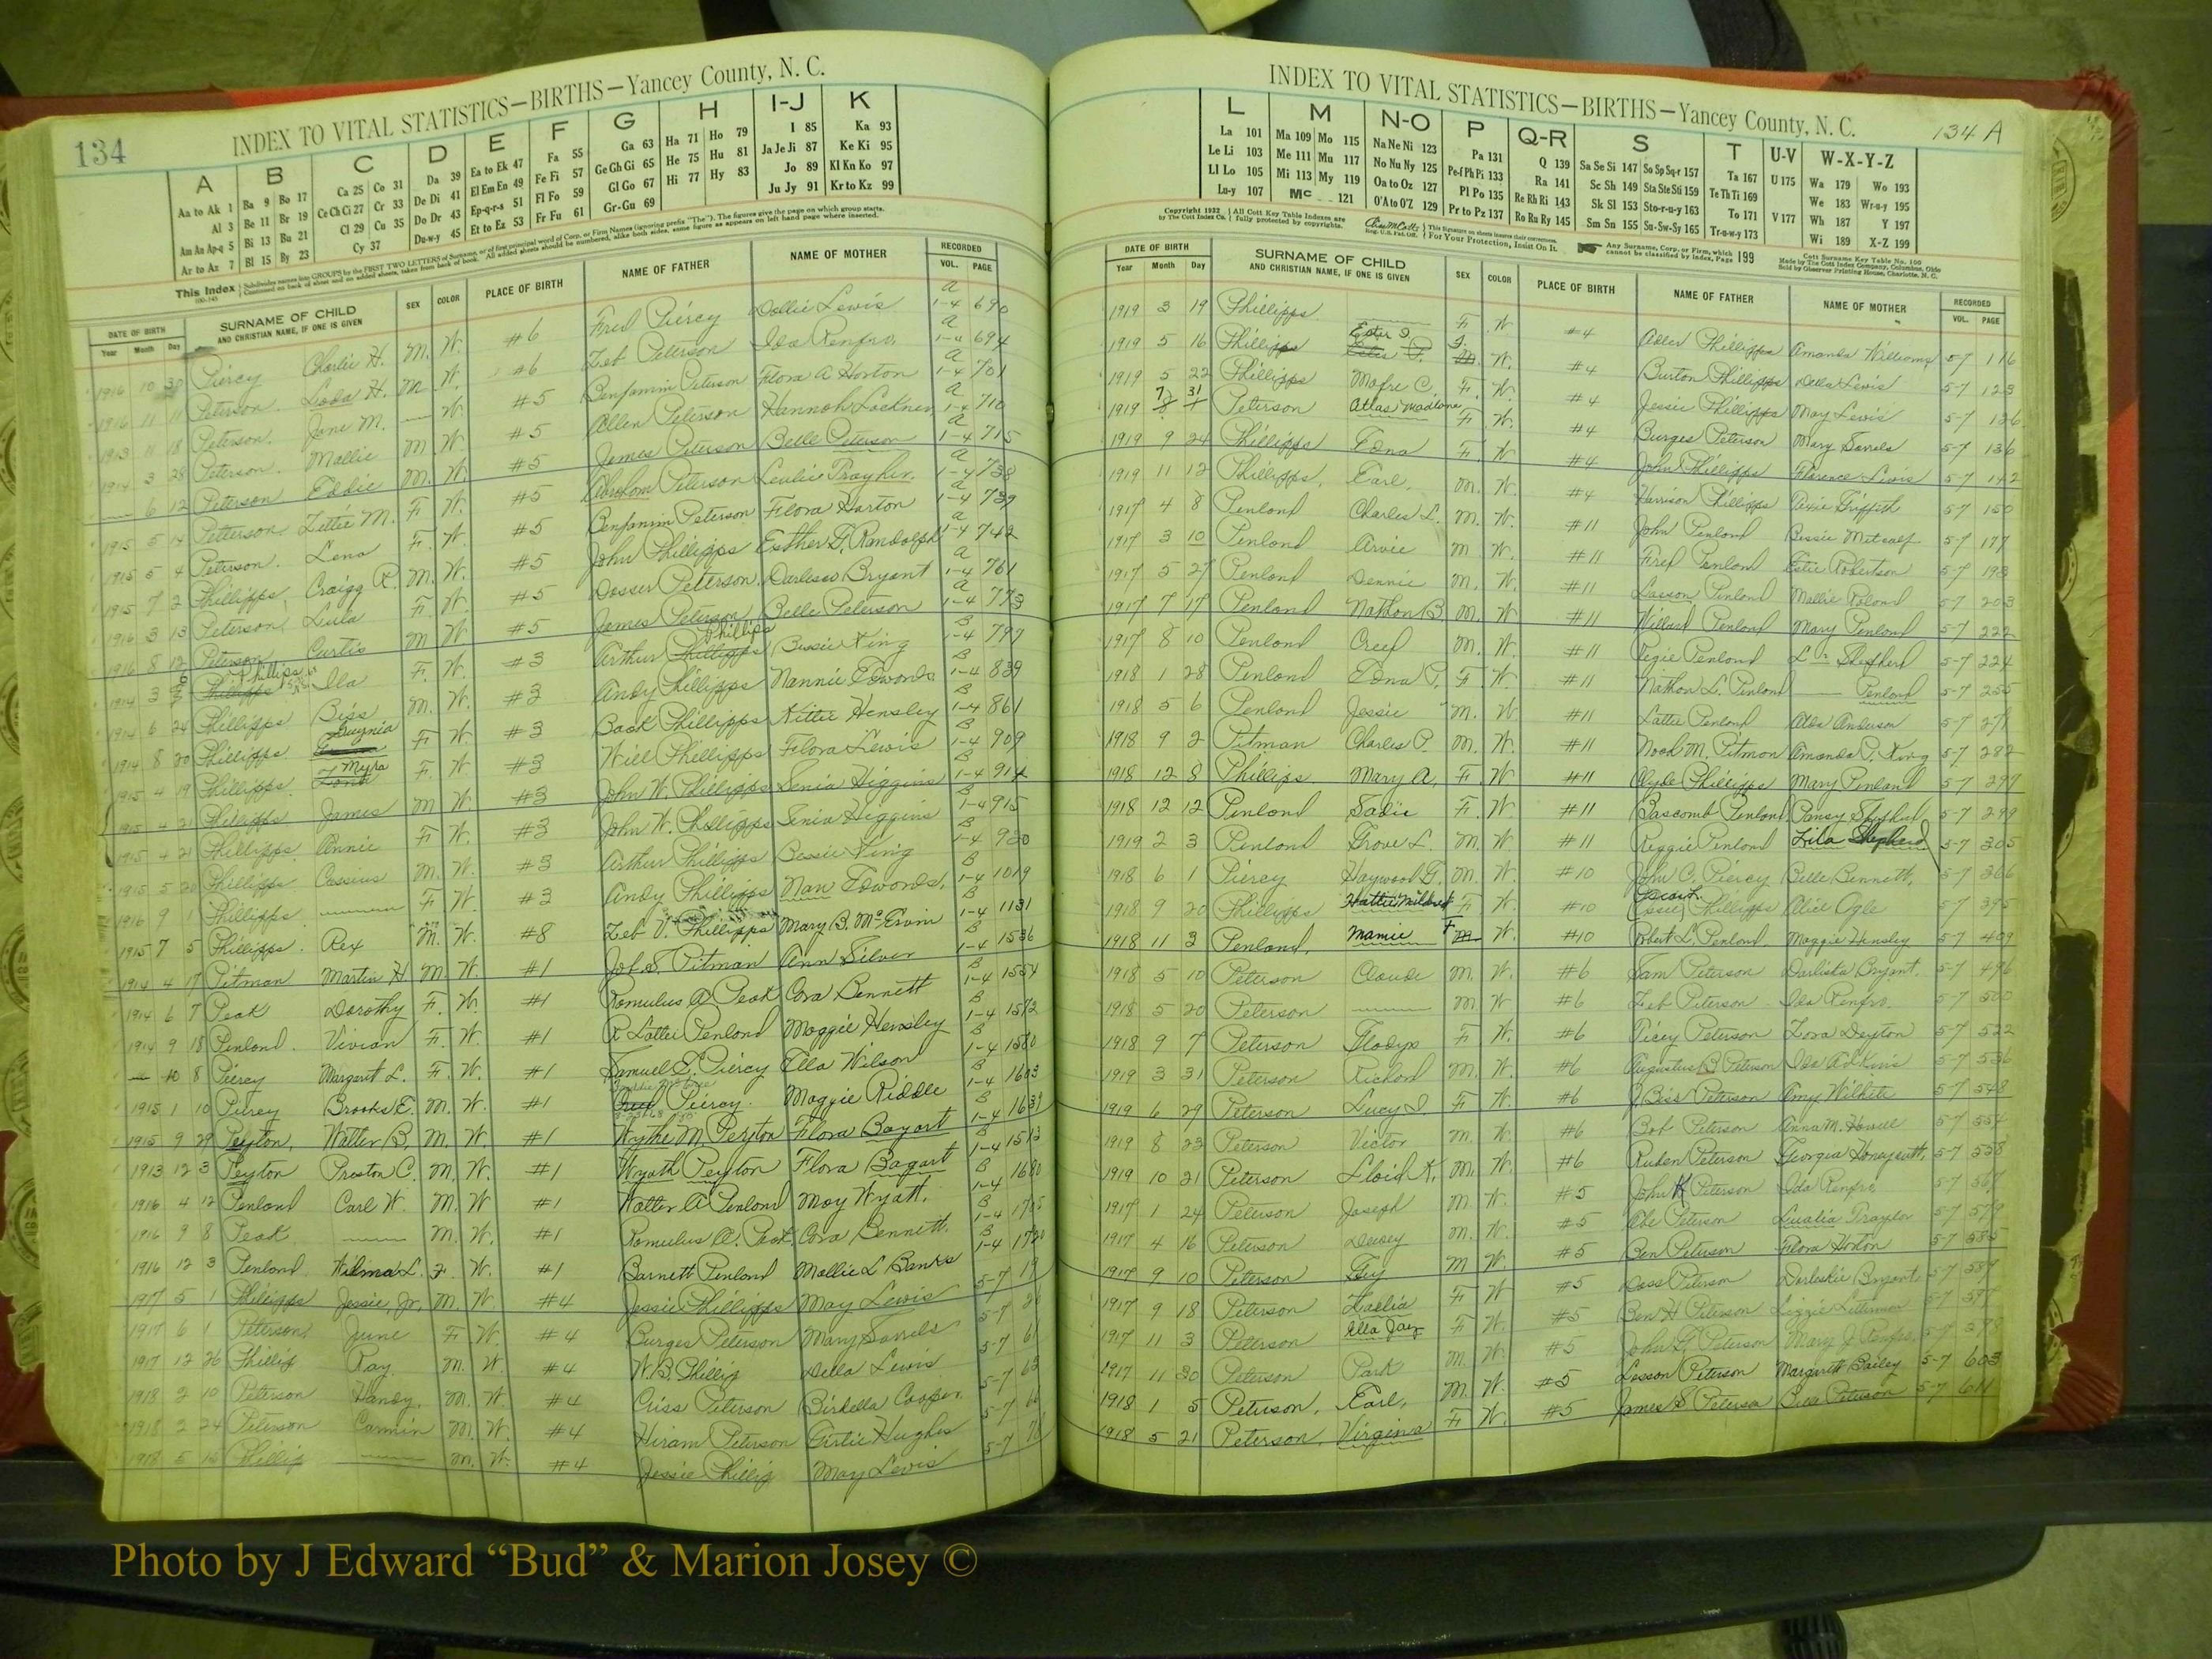 134
INDEX TO VITAL STATISTICS—BIRTHS—Yancey County, N. C.
A B C D E F G H I-J K
Aa to Ak 1 Ba 9 Bo 17 Ca 25 Co 31 Da 39 Ea to Ek 47 Fa 55 Ga 63 Ha 71 Ho 79 I 85 Ka 93
Al 3 Be 11 Br 19 Ce Ch Ci 27 Cr 33 De Di 41 El Em En 49 Fe Fi 57 Ge Gh Gi 65 He 75 Hu 81 Ja Je Ji 87 Ke Ki 95
Am An Ap-q 5 Bi 13 Bu 21 Cl 29 Cu 35 Do Dr 43 Ep-q-r-s 51 Fl Fo 59 Gl Go 67 Hi 77 Hy 83 Jo 89 Kl Kn Ko 97
Ar to Az 7 Bl 15 By 23 Cy 37 Du-w-y 45 Et to Ez 53 Fr Fu 61 Gr-Gu 69 Ju Jy 91 Kr to Kz 99
DATE OF BIRTH SURNAME OF CHILD SEX COLOR PLACE OF BIRTH NAME OF FATHER NAME OF MOTHER RECORDED
Year Month Day AND CHRISTIAN NAME, IF ONE IS GIVEN VOL. PAGE
1916 10 30 Piercy Charlie H. M. W. #6 Fred Piercy Dollie Lewis a 1-4 690
1916 11 11 Peterson. H. M W. #6 Zeb Peterson Ida Renfro. a 1-4 694
1913 11 18 Peterson. Jane M. — W. #5 Benjamin Peterson Flora A Horton a 1-4 701
1914 3 28 Peterson. Mallie M W. #5 Allen Peterson Hannah Lockner a 1-4 710
— 6 12 Peterson Eddie M. W. #5 James Peterson Belle Peterson a 1-4 715
1915 5 14 Peterson. Zettie M. F W. #5 Abraham Peterson a 1-4 738
1915 5 4 Peterson. Lena F. W. #5 Benjamin Peterson Flora Horton a 1-4 739
1915 7 2 Phillipps. Craigg R. M. W. #5 John Phillipps Esther D. Randolph a 1-4 742
1916 3 13 Peterson. Lula F. W. #5 Dosser Peterson. Bryant a 1-4 761
1916 8 12 Peterson Curtis M W. #5 James Peterson Belle Peterson a 1-4 773
1914 3 Phillips Ila F. W. #3 Arthur Phillips Bessie King B 1-4 797
1914 6 24 Phillipps Biss M. W. #3 Andy Phillipps Nannie Edwards B 1-4 839
1914 8 20 Phillipps. F W. #3 Phillipps Kittie Hensley B 1-4 861
1915 4 19 Phillipps. Myra F. W #3 Will Phillipps Flora Lewis B 1-4 909
1915 4 21 Phillipps James M W. #3 John W. Phillipps Higgins B 1-4 914
1915 4 21 Phillipps. Annie F W. #3 John W. Phillipps Higgins B 1-4 915
1915 5 20 Phillipps Cassius M. W. #3 Arthur Phillipps Bessie King B 1-4 930
1916 9 1 Phillipps. —— F W. #3 Andy Phillipps Nan Edwards. B 1-4 1019
1915 7 5 Phillipps. Rex M. W. #8 Zeb V. Phillipps Mary B. McErvin B 1-4 1131
1914 4 17 Pitman Martin H M. W. #1 Job S. Pitman Ann Silver B 1-4 1536
1914 6 7 Peak Dorothy F. W. #1 Romulus A. Peak Cora Bennett B 1-4 1554
1914 9 18 Penland. Vivian F. W. #1 R Lattie Penland Maggie Hensley B 1-4 1572
— 10 8 Piercy Margaret L. F. W. #1 Samuel E. Piercy Ella Wilson B 1-4 1580
1915 1 10 Piercy Brooks E. M. W. #1 Piercy. Maggie Riddle B 1-4 1603
1915 9 29 Peyton, Walter B. M. W. #1 Wythe M. Peyton Flora Bogart B 1-4 1639
1913 12 3 Peyton Preston C. M. W. #1 Wyath Peyton Flora Bagart B 1-4 1513
1916 4 12 Penland Carl W. M. W #1 Walter A Penland May Wyatt. B 1-4 1680
1916 9 8 Peak —— M. W. #1 Romulus A. Peak, Cora Bennett. B 1-4 1705
1916 12 3 Penland Wilma L. F. W. #1 Barnett Penland Mallie L Banks B 1-4 1720
1917 5 1 Phillipps Jessie, Jr. M. W. #4 Jessie Phillipps May Lewis 5-7 19
1917 6 1 Peterson, June F W. #4 Burges Peterson Mary 5-7
1917 12 26 Phillip Ray. M. W. #4 W. B. Phillip Della Lewis 5-7 61
1918 2 10 Peterson Handy. M. W. #4 Criss Peterson Birdella Cooper. 5-7 63
1918 2 24 Peterson Carmin M. W. #4 Hiram Peterson Hughes 5-7 66
1918 5 15 Phillip —— M. W. #4 Jessie Phillip May Lewis 5-7
INDEX TO VITAL STATISTICS—BIRTHS—Yancey County, N. C.
134 A
L M N-O P Q-R S T U-V W-X-Y-Z
La 101 Ma 109 Mo 115 Na Ne Ni 123 Pa 131 Q 139 Sa Se Si 147 So Sp Sq-r 157 Ta 167 U 175 Wa 179 Wo 193
Le Li 103 Me 111 Mu 117 No Nu Ny 125 Pe-f Ph Pi 133 Ra 141 Sc Sh 149 Sta Ste Sti 159 Te Th Ti 169 We 183 Wr-u-y 195
Ll Lo 105 Mi 113 My 119 Oa to Oz 127 Pl Po 135 Re Rh Ri 143 Sk Sl 153 Sto-r-u-y 163 To 171 V 177 Wh 187 Y 197
Lu-y 107 Mc 121 O'A to O'Z 129 Pr to Pz 137 Ro Ru Ry 145 Sm Sn 155 Su-Sw-Sy 165 Tr-u-w-y 173 Wi 189 X-Z 199
DATE OF BIRTH SURNAME OF CHILD SEX COLOR PLACE OF BIRTH NAME OF FATHER NAME OF MOTHER RECORDED
Year Month Day AND CHRISTIAN NAME, IF ONE IS GIVEN VOL. PAGE
1919 3 19 Phillipps —— F. W. #4 Phillipps Amanda Williams 5-7 116
1919 5 16 Phillipps W. #4 Burton Phillipps Della Lewis 5-7 123
1919 5 22 Phillipps Mafre C. F. W. #4 Jessie Phillipps May Lewis 5-7 126
1919 7 31 Peterson Atlas Madlone F. W. #4 Burges Peterson Mary 5-7 136
1919 9 24 Phillipps Edna F. W. #4 John Phillipps Florence Lewis 5-7 142
1919 11 12 Phillipps, Earl, M. W. #4 Harrison Phillipps Griffith 5-7 150
1917 4 8 Penland Charles L. M. W. #11 John Penland Bessie Metcalf 5-7 177
1917 3 10 Penland Arvie M. W. #11 Fred Penland Robertson 5-7 193
1917 5 27 Penland Dennie M. W. #11 Lawson Penland Mallie Roland 5-7 203
1917 7 17 Penland Nathan B. M. W. #11 Willard Penland Mary Penland 5-7 222
1917 8 10 Penland Creef M. W. #11 Penland Shepherd 5-7 224
1918 1 28 Penland Edna P. F. W. #11 Nathan L. Penland —— Penland 5-7 255
1918 5 6 Penland Jessie M. W. #11 Lattie Penland Anderson 5-7 271
1918 9 2 Pitman Charles P. M. W. #11 Noah M. Pitman Amanda P. King 5-7 282
1918 12 8 Phillips Mary A. F. W. #11 Clyde Phillipps Mary Penland 5-7 297
1918 12 12 Penland Sadie F. W. #11 Bascomb Penland Pansy 5-7 299
1919 2 3 Penland Grove L. M. W. #11 Reggie Penland Lila Shepherd 5-7 305
1918 6 1 Piercy Haywood G. M. W. #10 John C. Piercy Belle Bennett, 5-7 366
1918 9 20 Phillipps Hattie Mildred F. W. #10 Phillipps Alice Ogle 5-7 395
1918 11 3 Penland, Mamie F W. #10 Robert L. Penland. Maggie Hensley 5-7 409
1918 5 10 Peterson Claude M. W. #6 Sam Peterson Darlista Bryant. 5-7 496
1918 5 20 Peterson —— M. W #6 Zeb Peterson Ida Renfro. 5-7 500
1918 9 7 Peterson Gladys F. W. #6 Picey Peterson Deyton 5-7 522
1919 3 31 Peterson Richard M. W. #6 Augustus B Peterson Ida Adkins 5-7 536
1919 6 29 Peterson Lucy I F. W. #6 J. Biss Peterson Amy Wilhite 5-7 548
1919 8 23 Peterson Victor M. W. #6 Bob Peterson Anna M. Howell 5-7 554
1919 10 21 Peterson Lloid K. M. W. #6 Ruben Peterson Georgia Honeycutt, 5-7 558
1917 1 24 Peterson Joseph M. W. #5 John K Peterson Ida Renfro, 5-7 567
1917 4 16 Peterson Dewey M. W. #5 Abe Peterson 5-7
1917 9 10 Peterson Guy M W. #5 Ben Peterson Flora Horton 5-7 585
1917 9 18 Peterson F W #5 Doss Peterson Bryant 5-7
1917 11 3 Peterson Ella Jay F W. #5 Ben H Peterson Lizzie 5-7
1917 11 30 Peterson Park M. W. #5 John Peterson Mary J. 5-7
1918 1 5 Peterson, Earl, M. W. #5 Lesson Peterson Margarett Bailey 5-7 603
1918 5 21 Peterson, Virginia F. W. #5 James S Peterson Peterson 5-7 611
Photo by J Edward “Bud” & Marion Josey ©